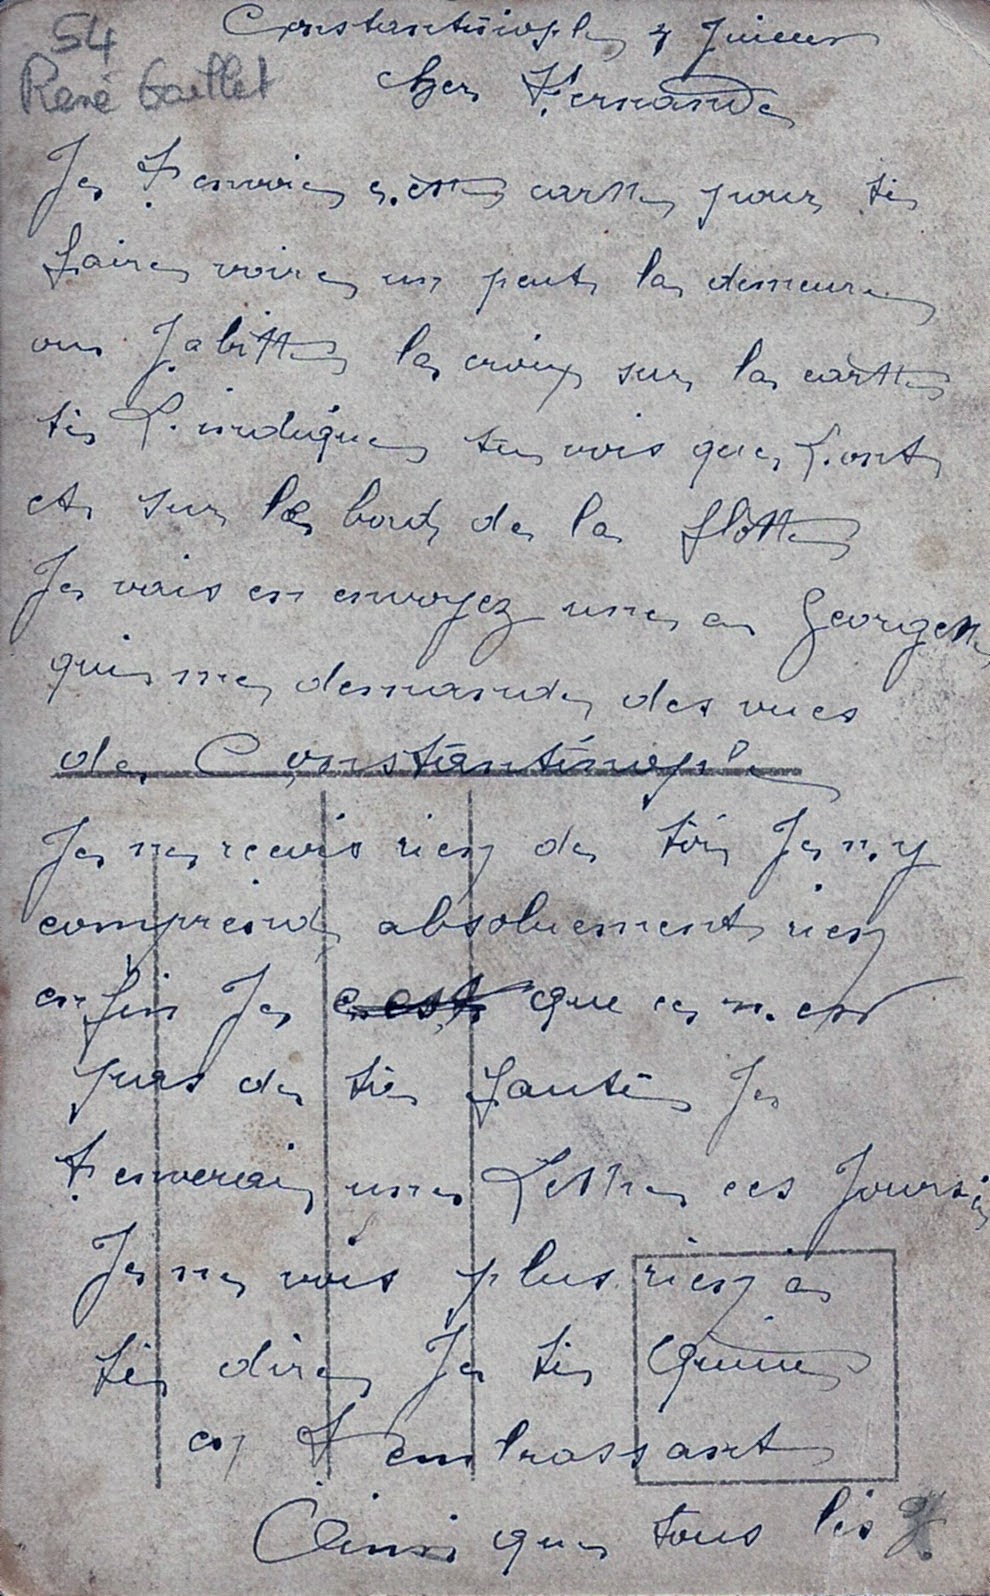 54
René Gaillet
Constantinople 7 Janvier
Cher Fernande
Je T'envoie cette cartte pour te
faire voire un peut la demeure
ou J'abitte la croix sur la cartte
te L'indique tu vois que L'ont
et sur le bord de la flotte
Je vais en envoyez une a Georgette
qui me demande des vues
de Constantinople
Je ne recois rien de toi Je n.y
comprend absoluement rien
enfin Je que ce n.est
pas de ta fautte Je
T'enverai une Lettre ces Jours ci
Je ne vois plus rien a
te dire Je te quitte
en T'embrassant
Ainsi que tous les